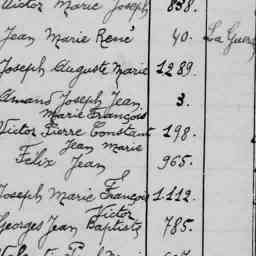 Victor Marie Joseph 838.
Jean Marie René 40. La Guer
Joseph Auguste Marie 1289.
Amand Joseph Jean 3.
Marie François
Victor Pierre Constant 198.
Jean Marie
Félix Jean 965.
Joseph Marie François 1112.
Victor
Georges Jean Baptiste 785.